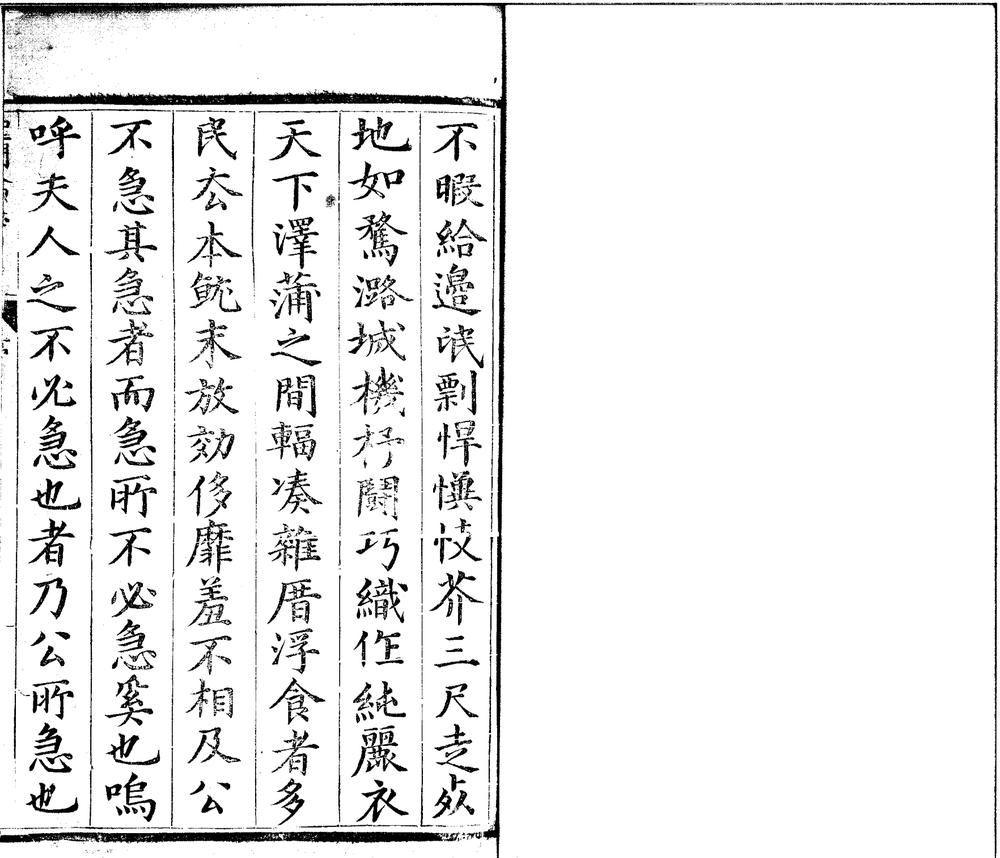 不暇給邊氓剽悍懻忮芥三尺走死
地如騖潞城機杼鬪巧織作純麗衣
天下澤蒲之間輻凑雜厝浮食者多
民厺本就末放効侈靡羞不相及公
不急其急者而急所不必急奚也嗚
呼夫人之不必急也者乃公所急也